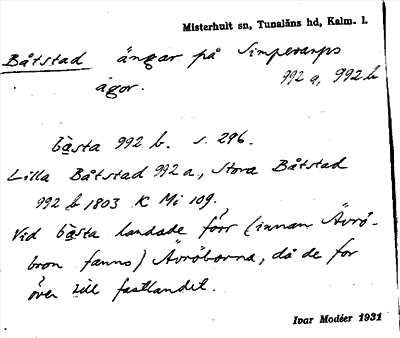 Misterhult sn, Tunaläns hd, Kalm. l.
Båtstad ängar på Simpevarps
ägor. 992 a, 992 b
båsta 992 b. s. 296.
Lilla Båtstad 992 a, Stora Båtstad
992 b 1803 K Mi 109.
Vid båsta landade förr (innan Ävrö-
bron fanns) Ävröborna, då de for
över till fastlandet.
Ivar Modéer 1931